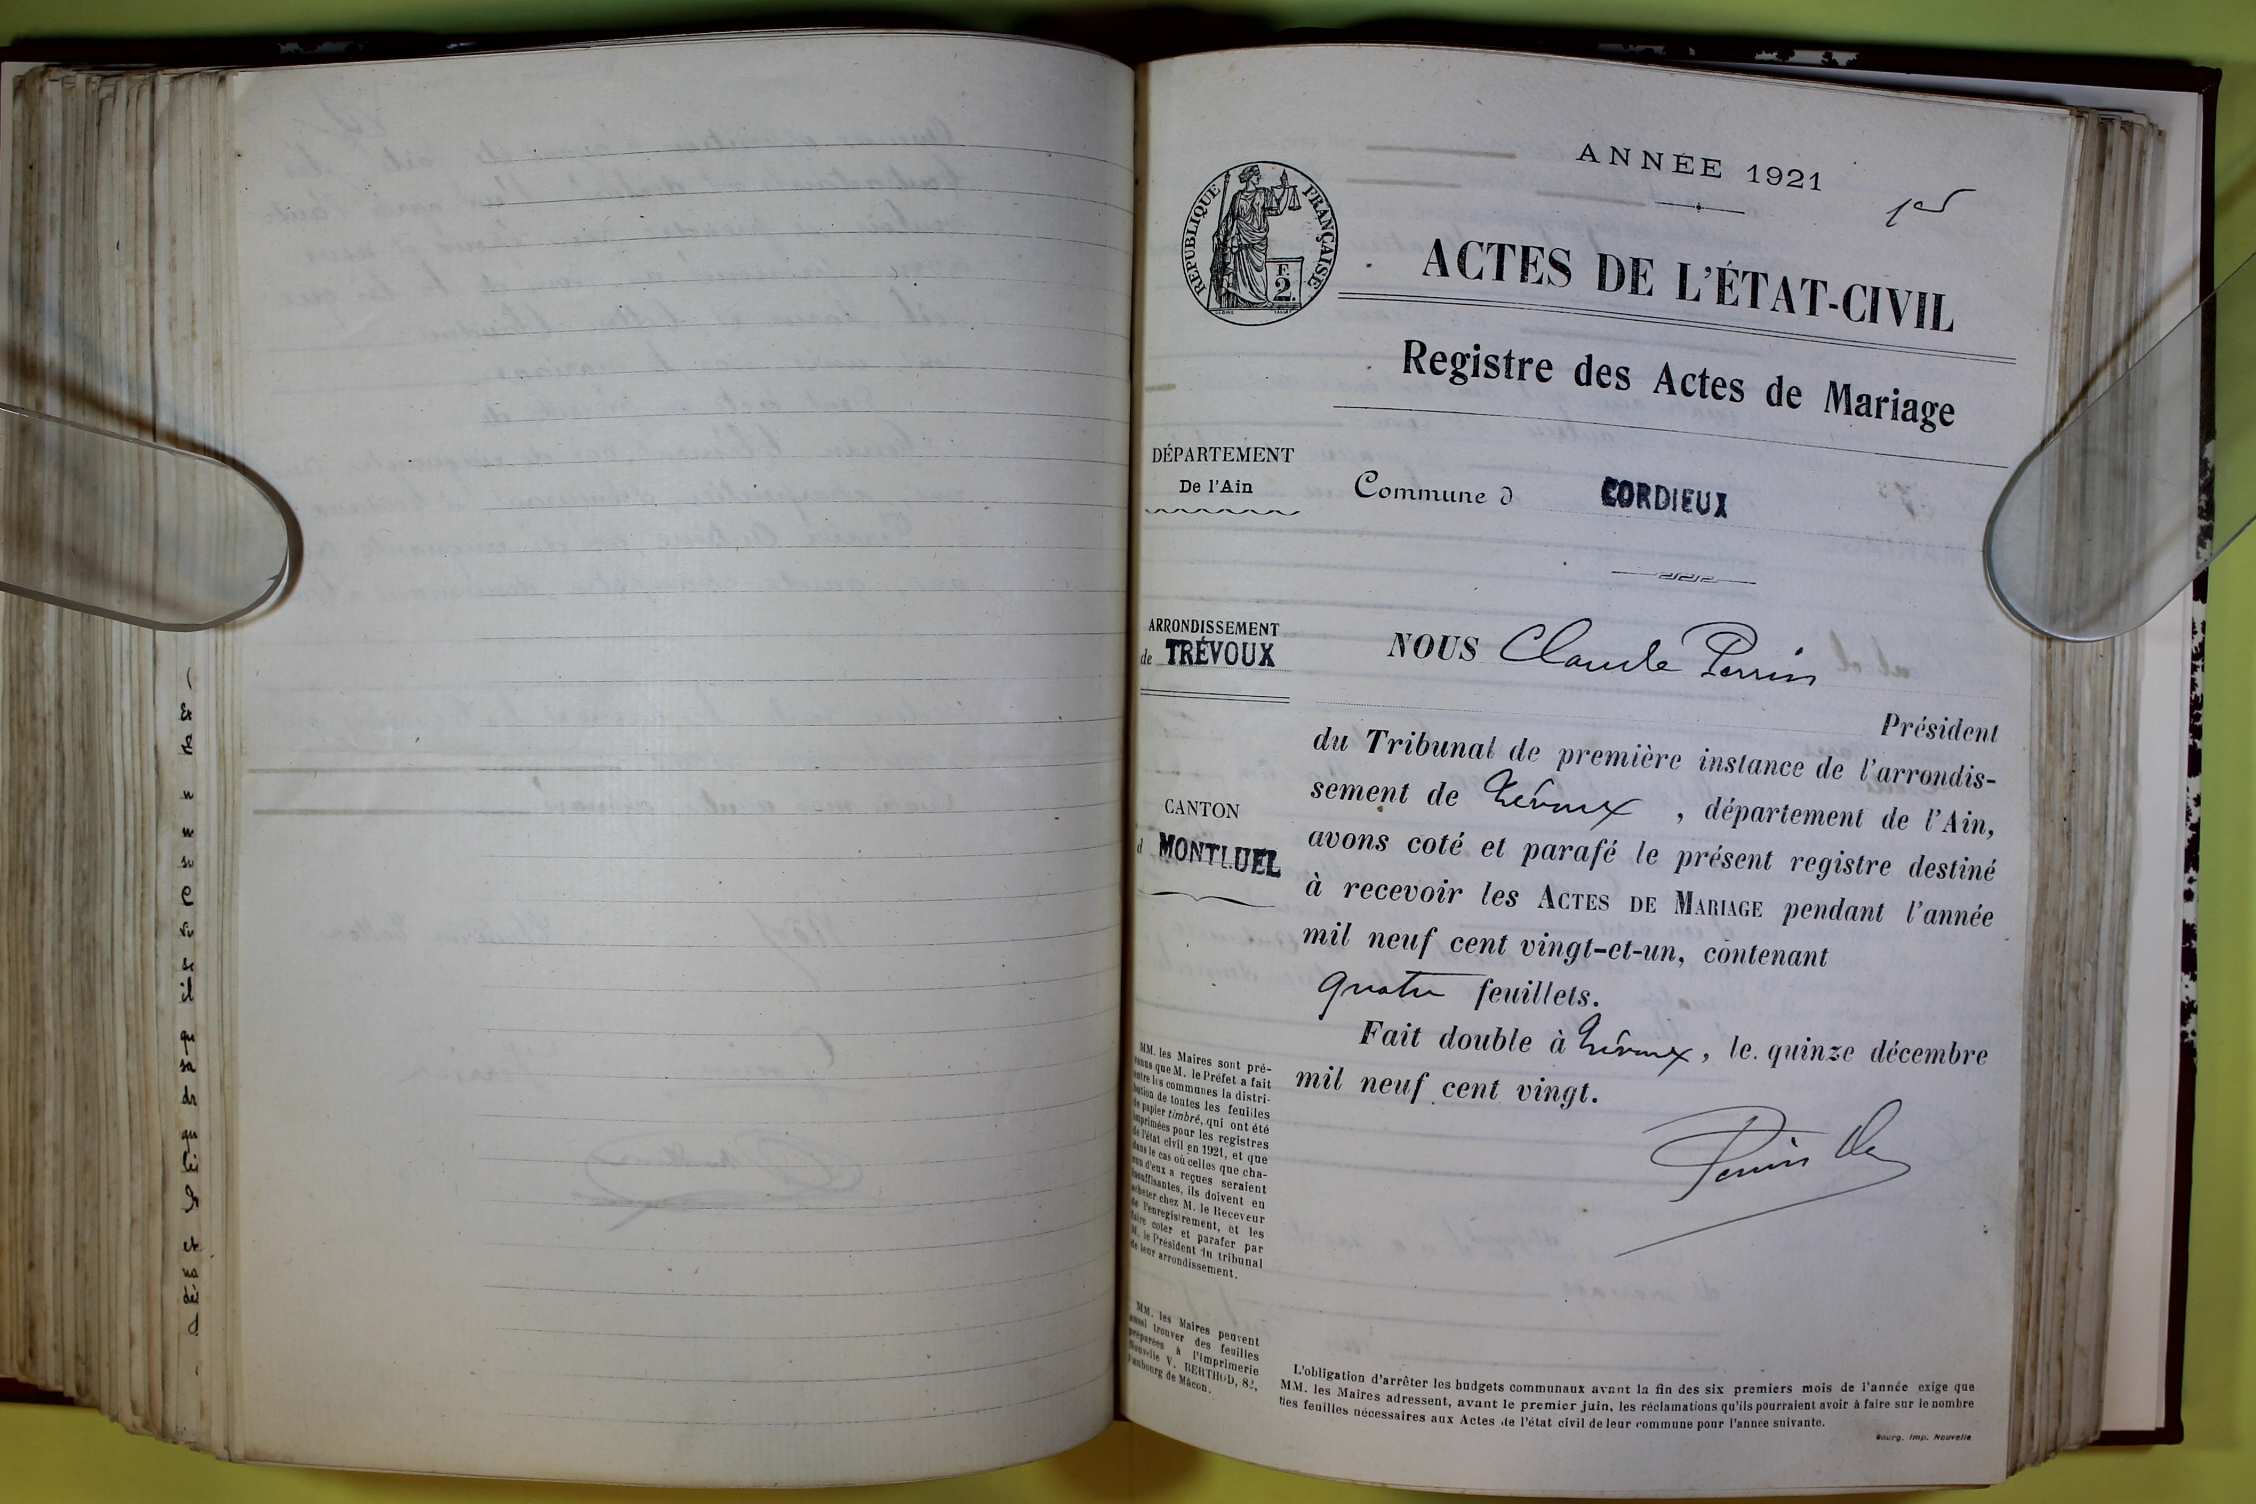 ANNÉE 1921
1er
RÉPUBLIQUE FRANÇAISE
F.
2.
ACTES DE L'ÉTAT-CIVIL
Registre des Actes de Mariage
DÉPARTEMENT
De l'Ain
Commune d CORDIEUX
ARRONDISSEMENT
de TRÉVOUX
CANTON
d MONTLUEL
NOUS Claude Perrin
Président
du Tribunal de première instance de l'arrondis-
sement de Trévoux, département de l'Ain,
avons coté et parafé le présent registre destiné
à recevoir les ACTES DE MARIAGE pendant l'année
mil neuf cent vingt-et-un, contenant
quatre feuillets.
Fait double à Trévoux, le quinze décembre
mil neuf cent vingt.
Perrin Cle
MM. les Maires sont pré-
venus que M. le Préfet a fait
entre les communes la distri-
bution de toutes les feuilles
de papier timbré, qui ont été
imprimées pour les registres
de l'état civil en 1921, et que
dans le cas où celles que cha-
cun d'eux a reçues seraient
insuffisantes, ils doivent en
acheter chez M. le Receveur
de l'enregistrement, et les
faire coter et parafer par
M. le Président du tribunal
de leur arrondissement.
MM. les Maires peuvent
aussi trouver des feuilles
préparées à l'imprimerie
Nouvelle V. BERTHOD, 82,
Faubourg de Mâcon.
L'obligation d'arrêter les budgets communaux avant la fin des six premiers mois de l'année exige que
MM. les Maires adressent, avant le premier juin, les réclamations qu'ils pourraient avoir à faire sur le nombre
des feuilles nécessaires aux Actes de l'état civil de leur commune pour l'année suivante.
Bourg. Imp. Nouvelle